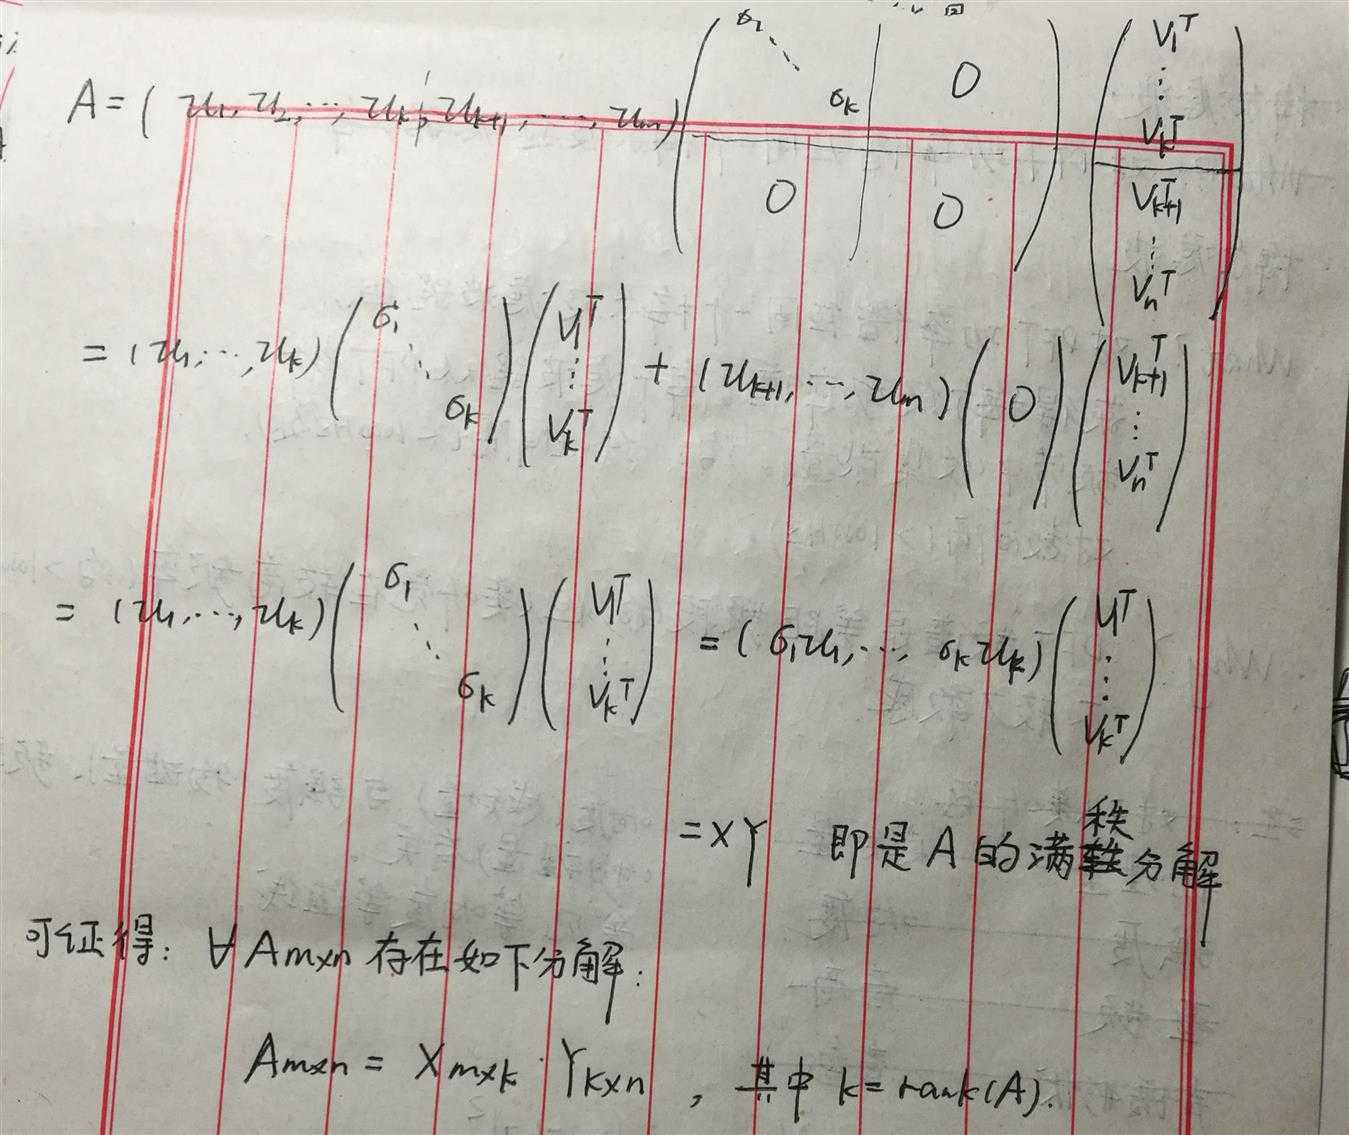 A = ( u₁, u₂, ⋯, uₖ, uₖ₊₁, ⋯, uₘ ) ( σ₁ ⋱ σₖ | 0 ; 0 | 0 ) ( v₁ᵀ ⋮ vₖᵀ ; vₖ₊₁ᵀ ⋮ vₙᵀ )
= (u₁, ⋯, uₖ) ( σ₁ ⋱ σₖ ) ( v₁ᵀ ⋮ vₖᵀ ) + (uₖ₊₁, ⋯, uₘ) ( 0 ) ( vₖ₊₁ᵀ ⋮ vₙᵀ )
= (u₁, ⋯, uₖ) ( σ₁ ⋱ σₖ ) ( v₁ᵀ ⋮ vₖᵀ ) = ( σ₁u₁, ⋯, σₖuₖ ) ( v₁ᵀ ⋮ vₖᵀ )
= XY 即是 A 的满秩分解
可证得: ∀ Aₘₓₙ 存在如下分解:
Aₘₓₙ = Xₘₓₖ · Yₖₓₙ , 其中 k = rank(A).